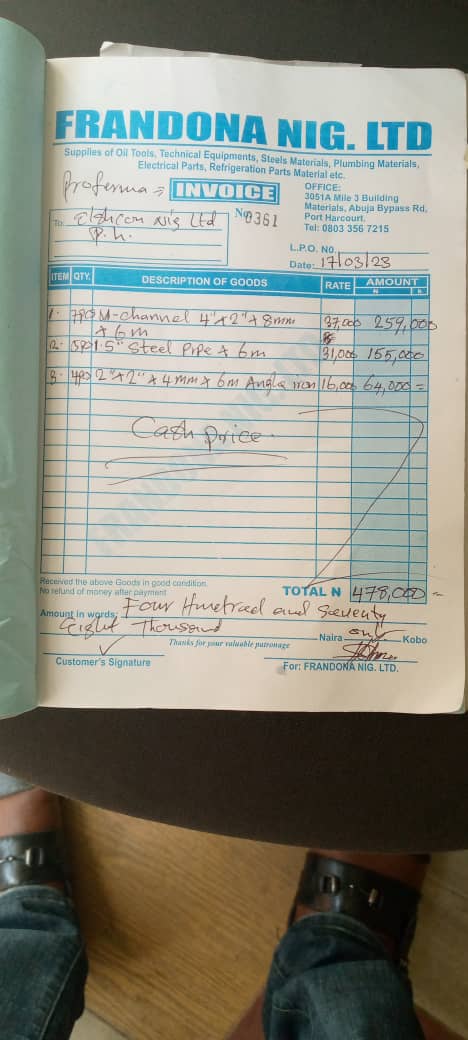 FRANDONA NIG. LTD
Supplies of Oil Tools, Technical Equipments, Steels Materials, Plumbing Materials,
Electrical Parts, Refrigeration Parts Material etc.
Proferma => INVOICE
OFFICE:
3051A Mile 3 Building
Materials, Abuja Bypass Rd,
Port Harcourt.
Tel: 0803 356 7215
To: Nig Ltd
P.H.
No 0361
L.P.O. No.
Date: 17/03/23
ITEM QTY. DESCRIPTION OF GOODS RATE AMOUNT
N K
1. 7pcs M-channel 4"x2"x8mm 37,000 259,000
x 6m
2. 5pcs 1.5" Steel Pipe x 6m 31,000 155,000
3. 4pcs 2"x2"x4mm x 6m Angle iron 16,000 64,000 =
Cash price.
Received the above Goods in good condition.
No refund of money after payment
TOTAL N 478,000 =
Amount in words: Four Hundred and Seventy
Eight Thousand Naira only Kobo
Thanks for your valuable patronage
Customer's Signature
For: FRANDONA NIG. LTD.